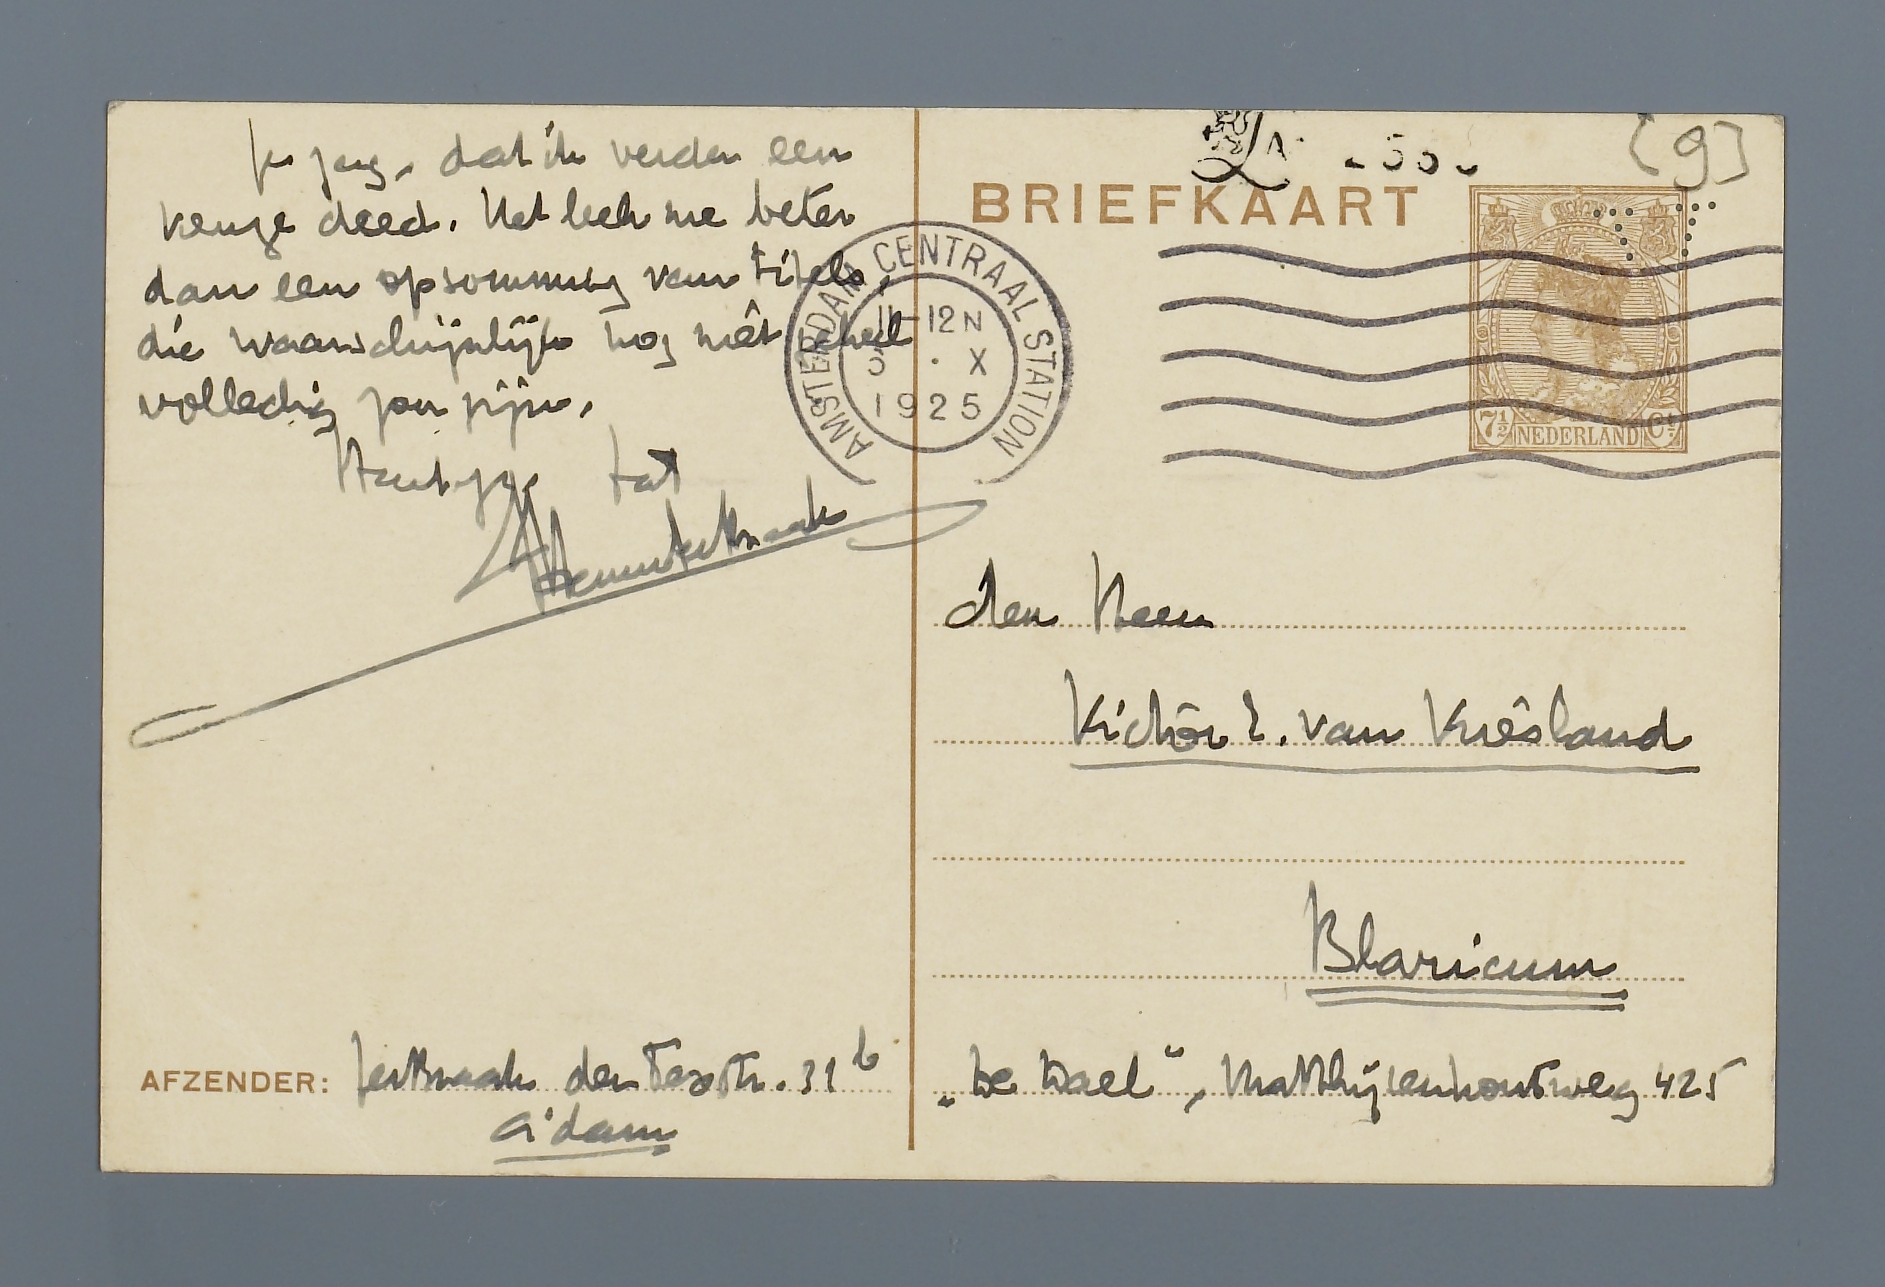 je zag, dat ik verder een
keuze deed. Het leek me beter
dan een opsomming van titels,
die waarschijnlijk nog niet geheel
volledig zou zijn.
Hartgr. tat
Menno ter Braak
AFZENDER: ter Braak den Texstr. 31 b
A'dam
BRIEFKAART
[9]
AMSTERDAM CENTRAAL STATION
11-12 N
X
1925
7½ NEDERLAND Ct
den Heer
Victor E. van Vriesland
Blaricum
"De Dael", Matthijsenhoutweg 425